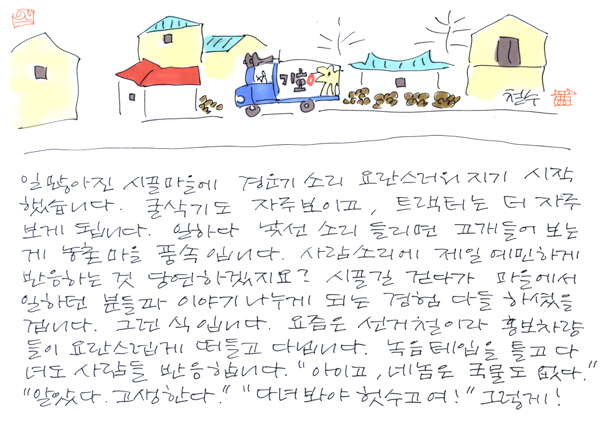 기호
철수
일 많아진 시골마을에 경운기 소리 요란스러워지기 시작
했습니다. 굴삭기도 자주보이고, 트랙터는 더 자주
보게 됩니다. 일하다 낯선 소리 들리면 고개들어 보는
게 농촌마을 풍속입니다. 사람소리에 제일 예민하게
반응하는 것 당연하겠지요? 시골길 걷다가 마을에서
일하던 분들과 이야기나누게 되는 경험 다들 하셨을
겁니다. 그런 식입니다. 요즘은 선거철이라 홍보차량
들이 요란스럽게 떠들고 다닙니다. 녹음테잎을 틀고 다
녀도 사람들 반응합니다. "아이고, 네놈은 국물도 없다."
"알았다. 고생한다." "다녀봐야 헛수고여!" 그렇게!